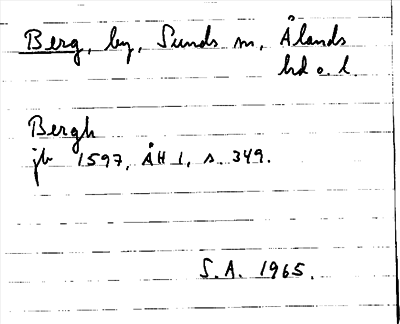 Berg, by, Sunds sn, Ålands
hd o. l.
Bergh
jb 1597, ÅH 1, s. 349.
S.A. 1965.